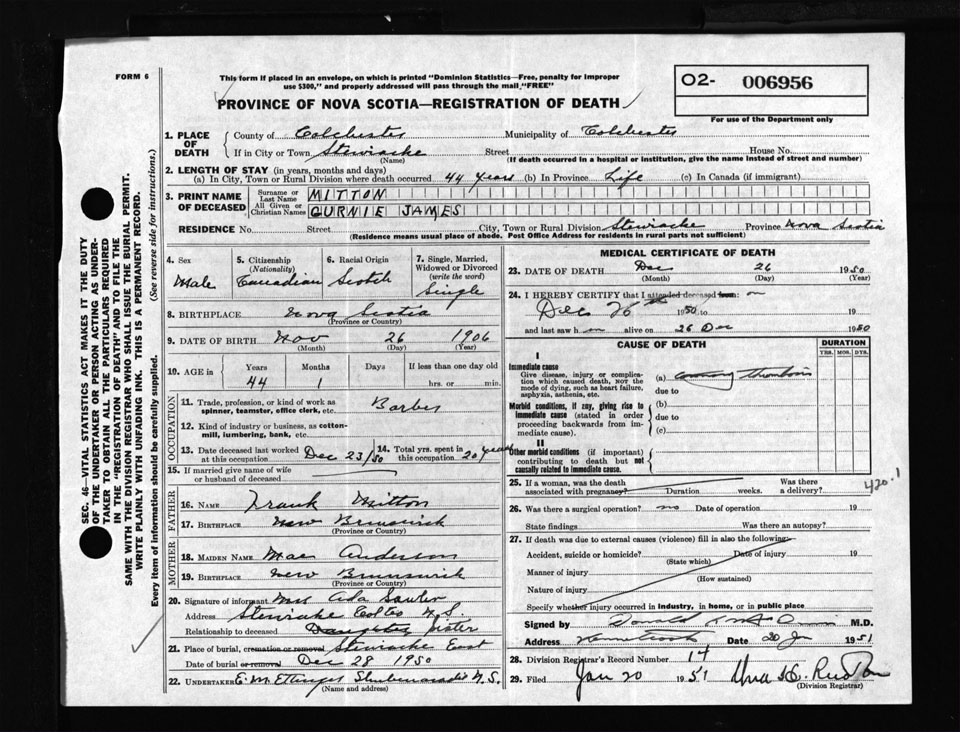 FORM 6
This form if placed in an envelope, on which is printed "Dominion Statistics—Free, penalty for improper
use $300," and properly addressed will pass through the mail "FREE"
PROVINCE OF NOVA SCOTIA—REGISTRATION OF DEATH
O2- 006956
For use of the Department only
1. PLACE OF DEATH
County of Colchester Municipality of Colchester
If in City or Town Stewiacke Street House No.
(Name) (If death occurred in a hospital or institution, give the name instead of street and number)
2. LENGTH OF STAY (in years, months and days)
(a) In City, Town or Rural Division where death occurred 44 years (b) In Province Life (c) In Canada (if immigrant)
3. PRINT NAME OF DECEASED
Surname or Last Name MITTON
All Given or Christian Names GURNIE JAMES
RESIDENCE No. Street City, Town or Rural Division Stewiacke Province Nova Scotia
(Residence means usual place of abode. Post Office Address for residents in rural parts not sufficient)
4. Sex Male
5. Citizenship (Nationality) Canadian
6. Racial Origin Scotch
7. Single, Married, Widowed or Divorced (write the word) Single
8. BIRTHPLACE Nova Scotia
(Province or Country)
9. DATE OF BIRTH Nov 26 1906
(Month) (Day) (Year)
10. AGE in Years Months Days If less than one day old
44 1 hrs. or min.
OCCUPATION
11. Trade, profession, or kind of work as spinner, teamster, office clerk, etc. Barber
12. Kind of industry or business, as cotton-mill, lumbering, bank, etc.
13. Date deceased last worked at this occupation Dec 23/50
14. Total yrs. spent in this occupation 20 years
15. If married give name of wife or husband of deceased
FATHER
16. NAME Frank Mitton
17. BIRTHPLACE New Brunswick
MOTHER
18. MAIDEN NAME Mae Anderson
19. BIRTHPLACE New Brunswick
(Province or Country)
20. Signature of informant Mrs Ada
Address Stewiacke Colts N.S.
Relationship to deceased Daughter Sister
21. Place of burial, cremation or removal Stewiacke East
Date of burial or removal Dec 28 1950
22. UNDERTAKER E. M. Ettinger Shubenacadie N.S.
(Name and address)
MEDICAL CERTIFICATE OF DEATH
23. DATE OF DEATH Dec 26 1950
(Month) (Day) (Year)
24. I HEREBY CERTIFY that I attended deceased from: on
Dec 26th 1950 to 19
and last saw h m alive on 26 Dec 1950
CAUSE OF DEATH
DURATION
YRS. MOS. DYS.
I
Immediate cause
Give disease, injury or complication which caused death, NOT the mode of dying, such as heart failure, asphyxia, asthenia, etc.
(a) Coronary Thrombosis
due to
Morbid conditions, if any, giving rise to immediate cause (stated in order proceeding backwards from immediate cause).
(b)
due to
(c)
II
Other morbid conditions (if important) contributing to death but not causally related to immediate cause.
25. If a woman, was the death associated with pregnancy? Duration weeks. Was there a delivery?
420.1
26. Was there a surgical operation? no Date of operation 19
State findings Was there an autopsy?
27. If death was due to external causes (violence) fill in also the following:
Accident, suicide or homicide? Date of injury 19
(State which)
Manner of injury
(How sustained)
Nature of injury
Specify whether injury occurred in industry, in home, or in public place
Signed by Donald M.D.
Address Date 20 Jan 1951
28. Division Registrar's Record Number 14
29. Filed Jan 20 1951
(Division Registrar)
SEC. 46—VITAL STATISTICS ACT MAKES IT THE DUTY
OF THE UNDERTAKER OR PERSON ACTING AS UNDER-
TAKER TO OBTAIN ALL THE PARTICULARS REQUIRED
IN THE "REGISTRATION OF DEATH" AND TO FILE THE
SAME WITH THE DIVISION REGISTRAR WHO SHALL ISSUE THE BURIAL PERMIT.
WRITE PLAINLY WITH UNFADING INK. THIS IS A PERMANENT RECORD.
Every item of information should be carefully supplied. (See reverse side for instructions.)